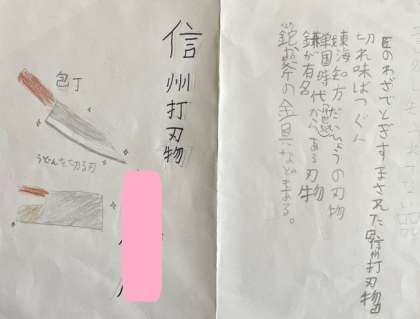 匠のわざでとぎすまされた信州打刃物
切れ味ばつぐん
東海知方だいひょうの刃物
戦国時代からある刃物
鎌が有名
斧の金具などもある。
信州打刃物
包丁
うどんを切る刃